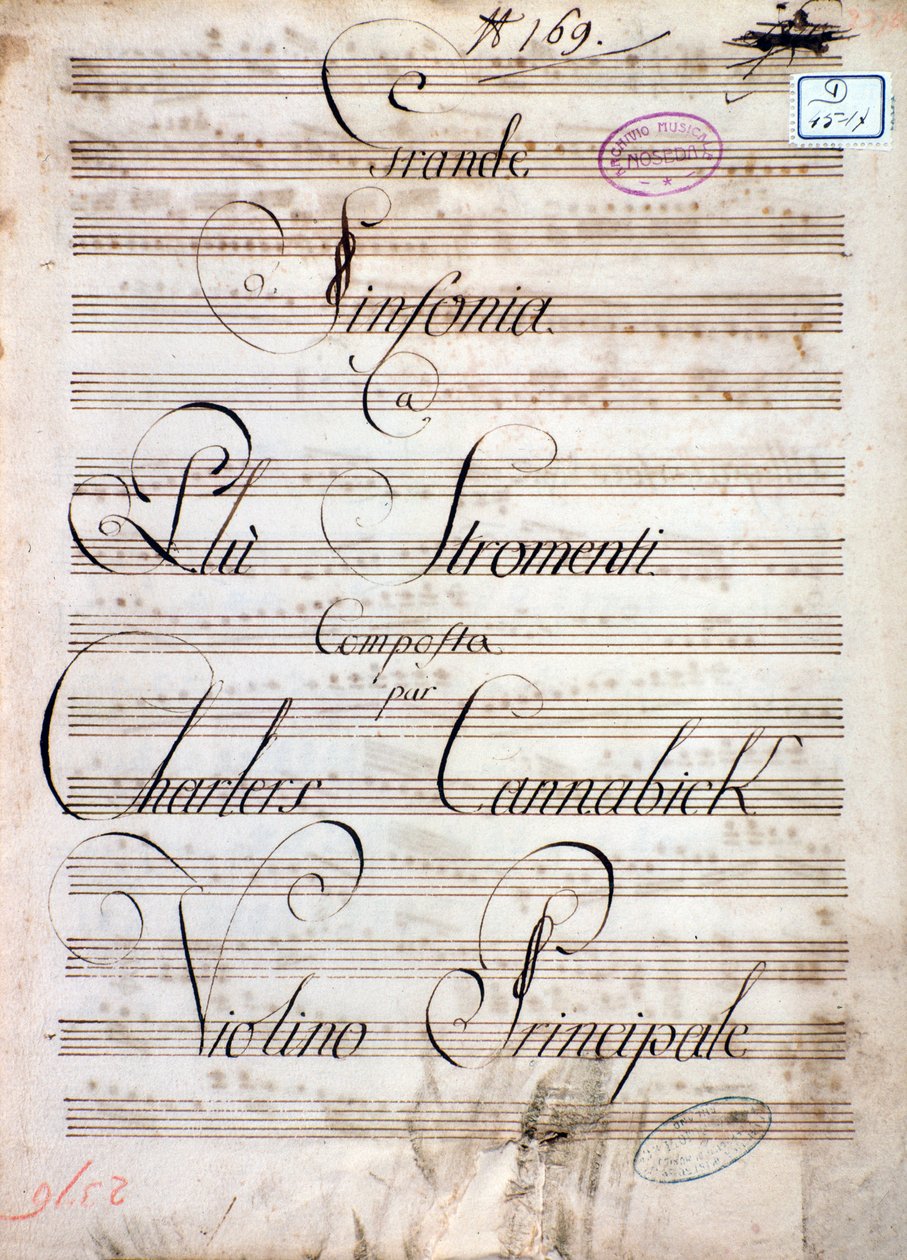 169.
D
45-14
Grande
ARCHIVIO MUSICALE
NOSEDA
Sinfonia.
a
Più Stromenti.
Composta
par
Charlers Cannabick
Violino Principale